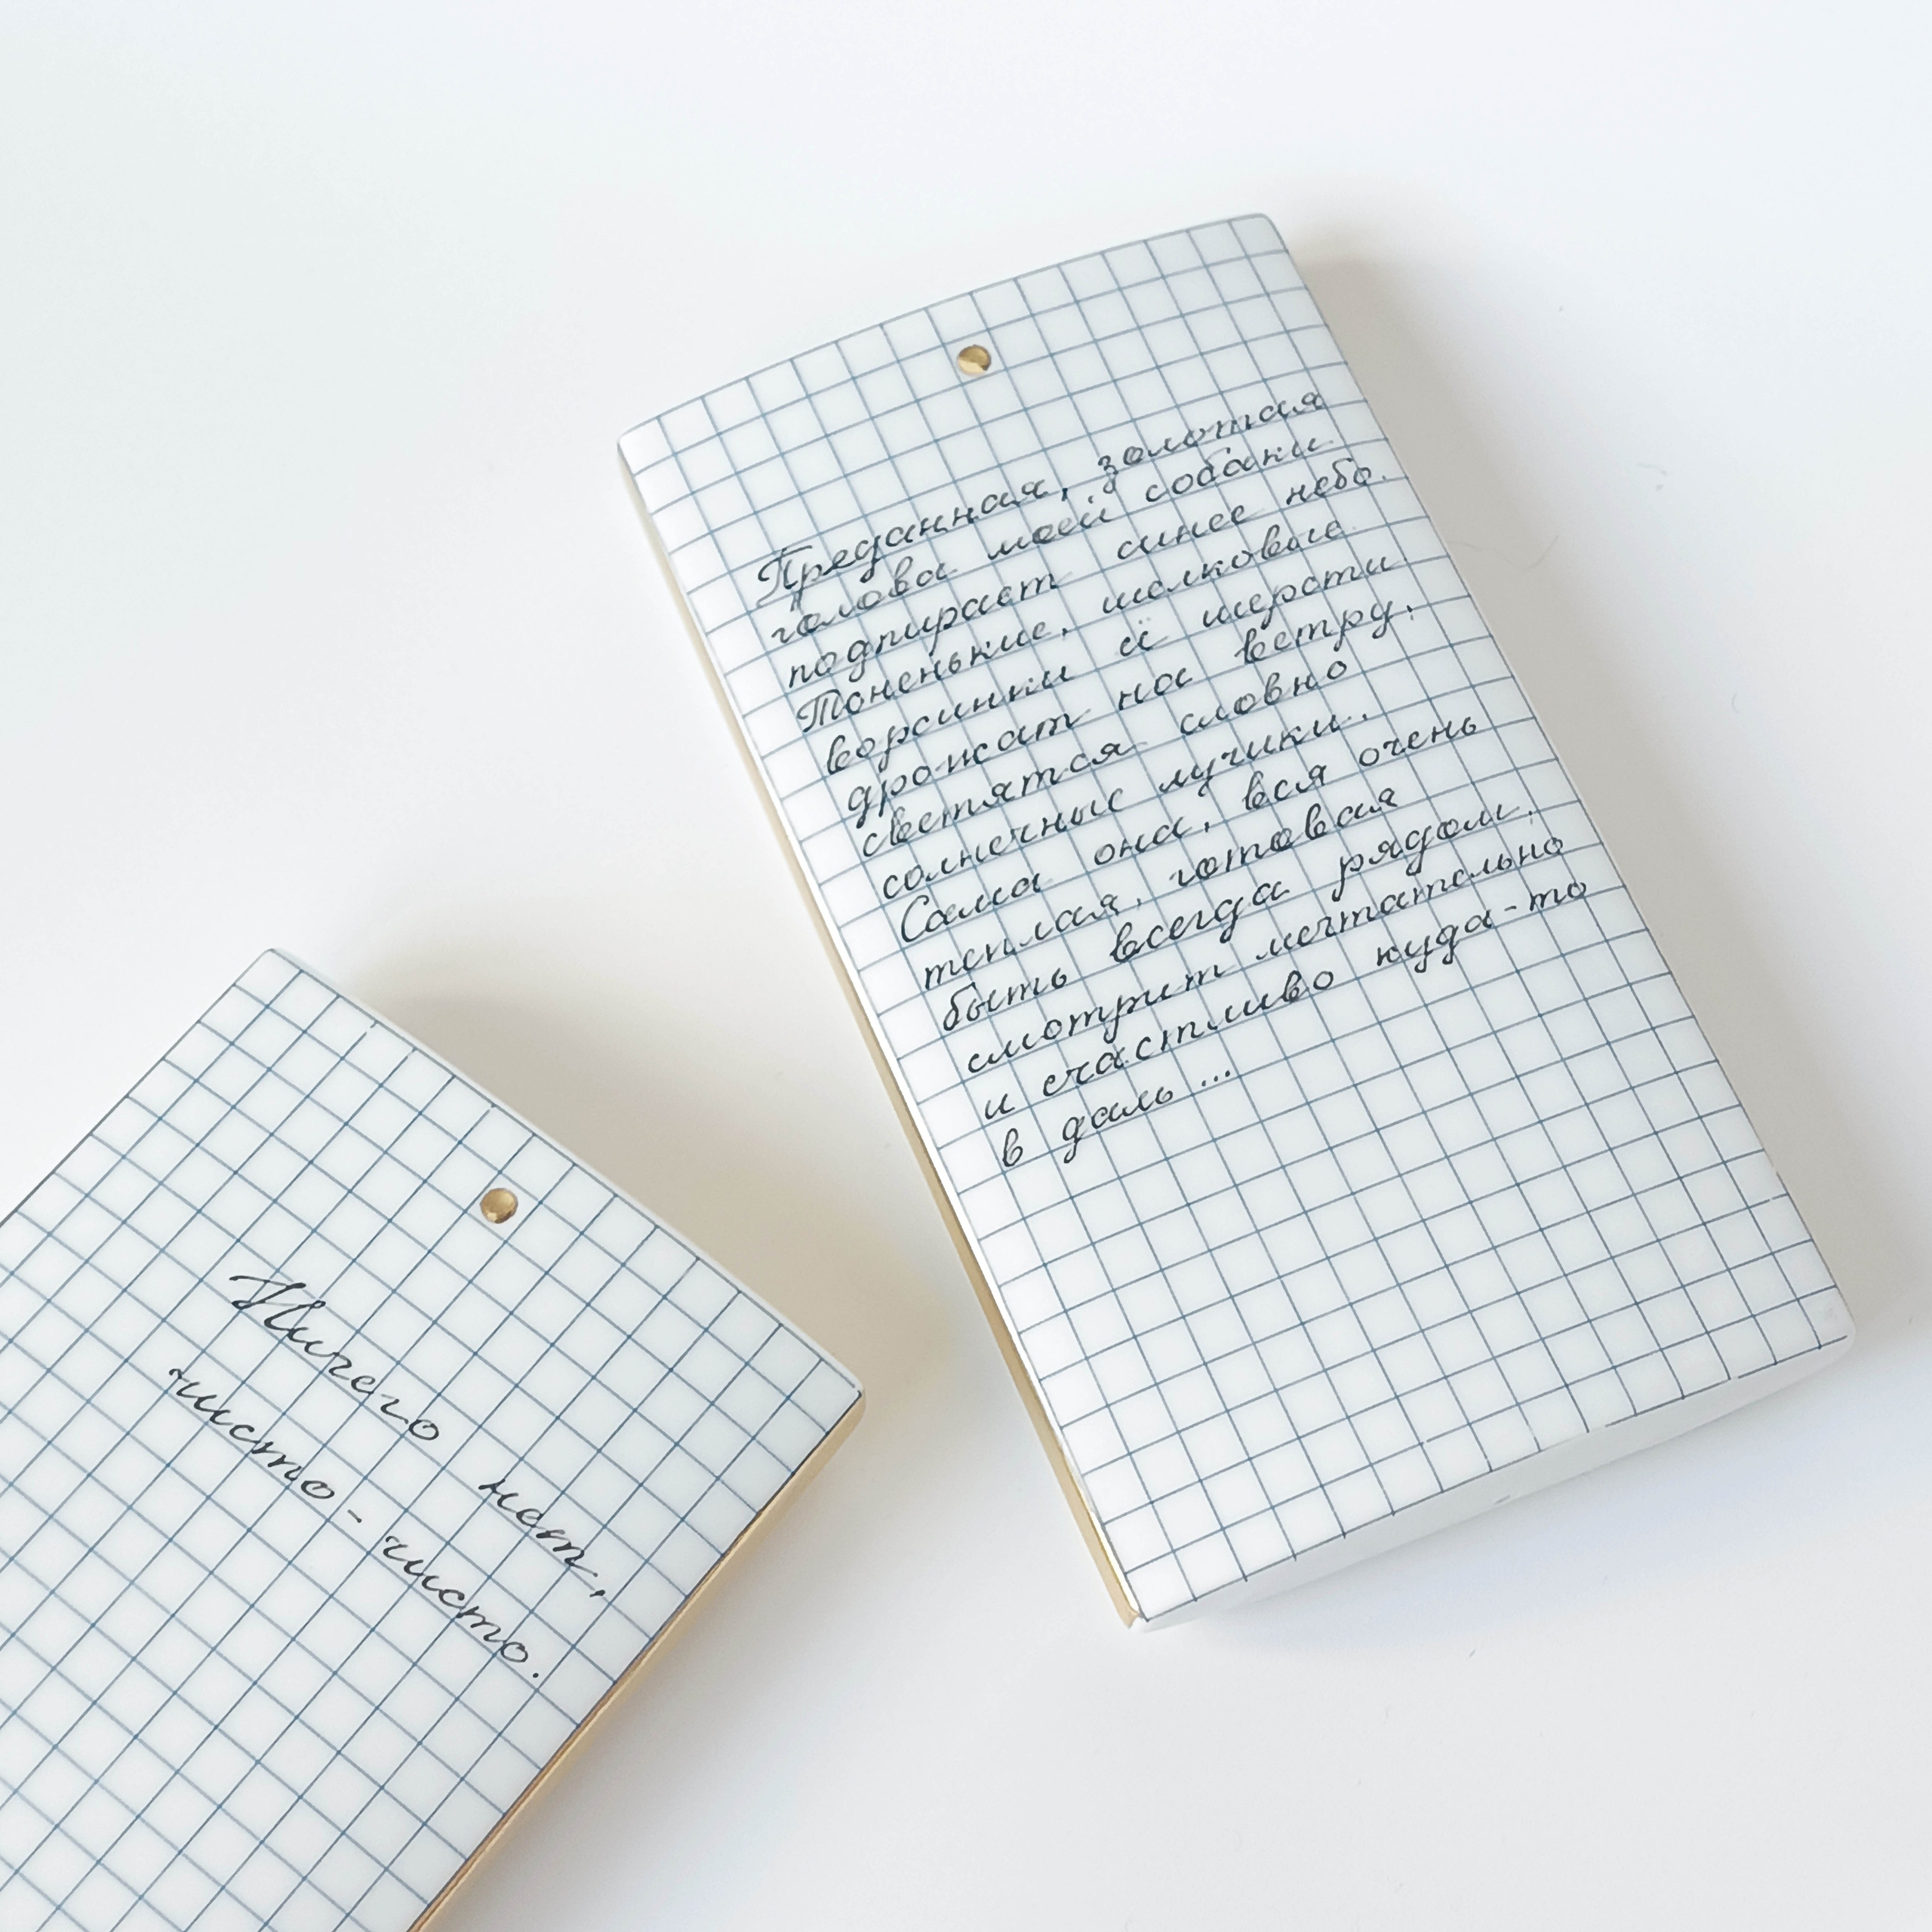 Преданная, золотая
голова моей собаки
подпирает синее небо.
Тоненькие, шелковые
ворсинки её шерсти
дрожат на ветру,
светятся словно
солнечные лучики.
Сама она, вся очень
теплая, готовая
быть всегда рядом,
смотрит мечтательно
и счастливо куда-то
в даль...
Ничего нет,
чисто-чисто.